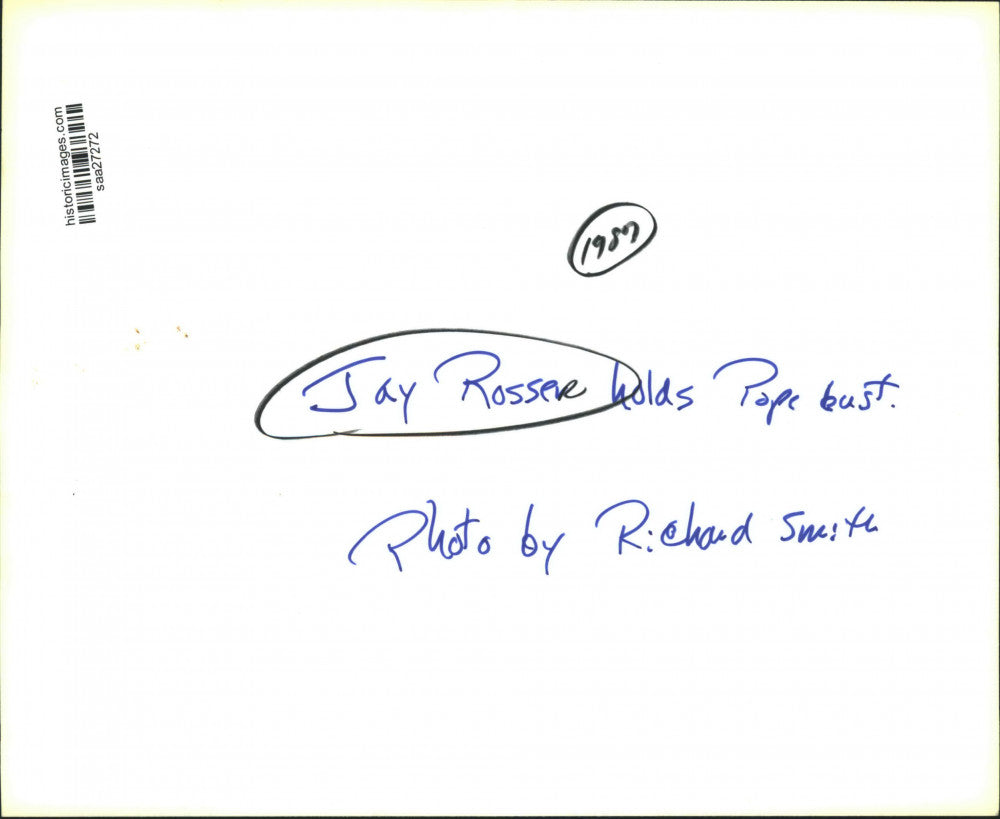 historicimages.com
saa27272
1987
Jay Rosser holds Pope bust.
Photo by Richard Smith